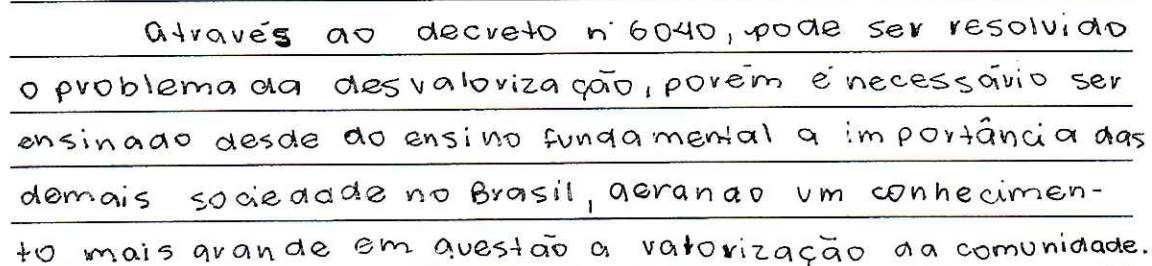 Através do decreto nº 6040, pode ser resolvido
o problema da desvalorização, porém é necessário ser
ensinado desde do ensino fundamental a importância das
demais sociedade no Brasil, gerando um conhecimen-
to mais grande em questão a valorização da comunidade.